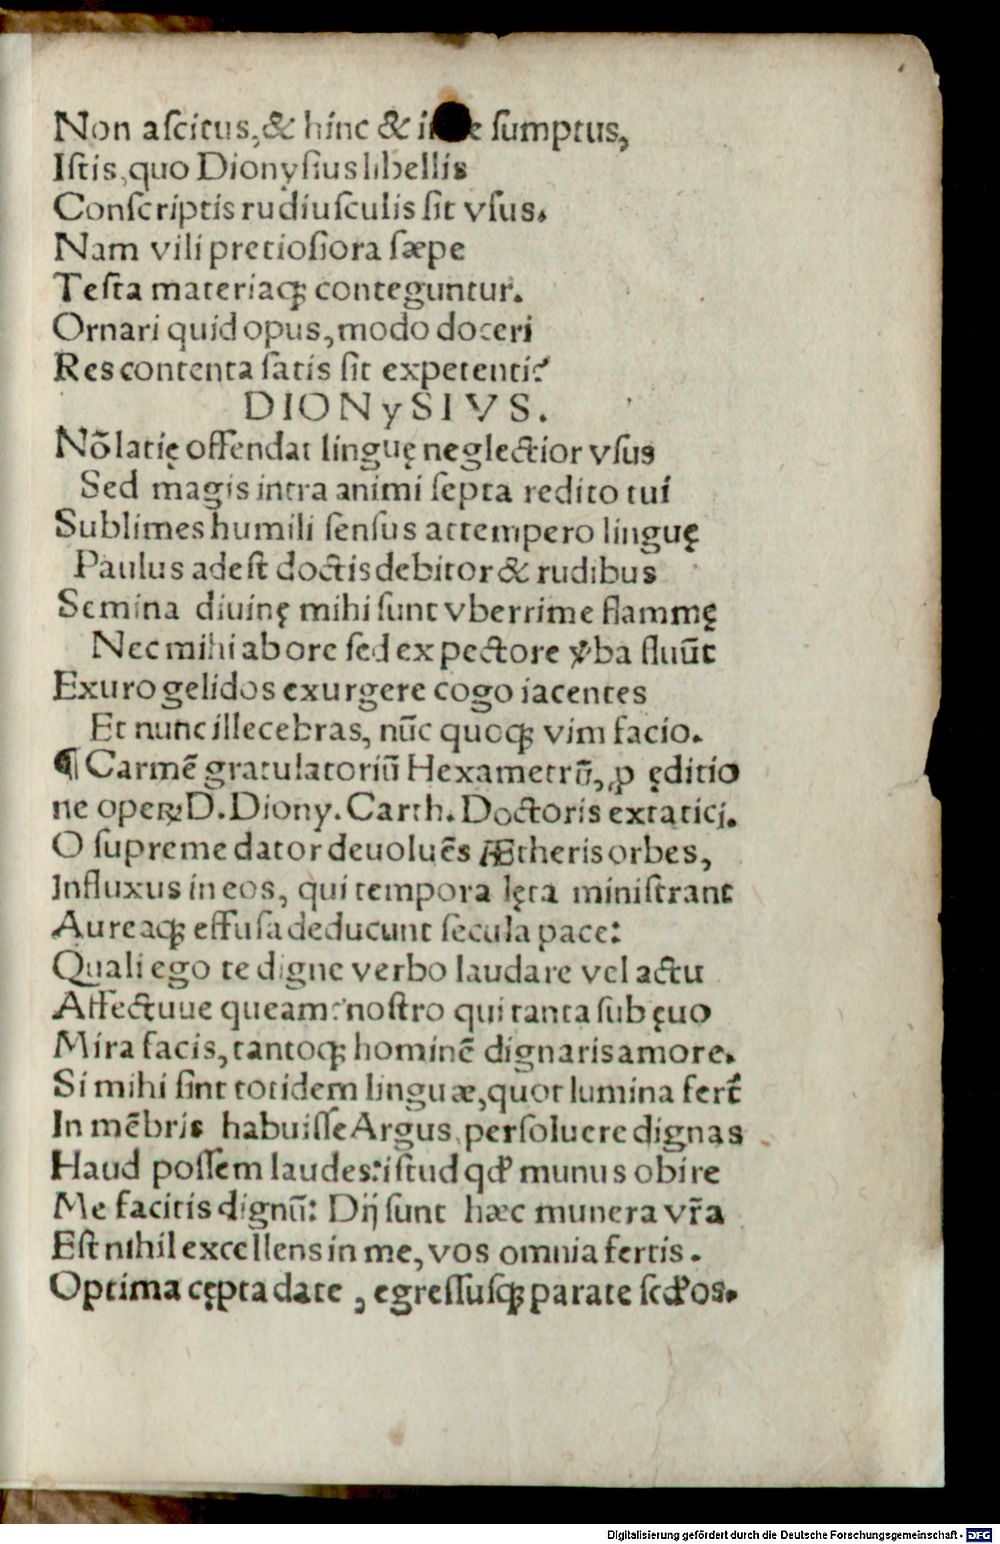 Non aſcitus,& hinc & i e ſumptus,
Iſtis,quo Dionyſius libellis
Conſcriptis rudiuſculis ſit vſus.
Nam vili pretioſiora ſæpe
Teſta materiaqꝫ conteguntur.
Ornari quid opus,modo doceri
Res contenta ſatis ſit expetenti?
DIONySIVS.
Nõ latię offendat linguę neglectior vſus
Sed magis intra animi ſepta redito tui
Sublimes humili ſenſus attempero linguę
Paulus adeſt doctis debitor & rudibus
Semina diuinę mihi ſunt vberrime flammę
Nec mihi ab ore ſed ex pectore ꝟba fluũt
Exuro gelidos exurgere cogo iacentes
Et nunc illecebras, nũc quoqꝫ vim facio.
¶ Carmẽ gratulatoriũ Hexametrũ, ꝓ ęditio
ne operꝝ D. Diony. Carth. Doctoris extatici.
O ſupreme dator deuoluẽs Ætheris orbes,
Influxus in eos, qui tempora lęta miniſtrant
Aureaqꝫ effuſa deducunt ſecula pace:
Quali ego te digne verbo laudare vel actu
Affectuue queam? noſtro qui tanta ſub ęuo
Mira facis,tantoqꝫ hominẽ dignaris amore.
Si mihi ſint totidem linguæ,quot lumina fert̃
In mẽbris habuiſſe Argus,perſoluere dignas
Haud poſſem laudes:iſtud qđ munus obire
Me facitis dignũ: Dij ſunt hæc munera vr̃a
Eſt nihil excellens in me, vos omnia fertis.
Optima cępta date , egreſſuſqꝫ parate ſcđos.
Digitalisierung gefördert durch die Deutsche Forschungsgemeinschaft - DFG